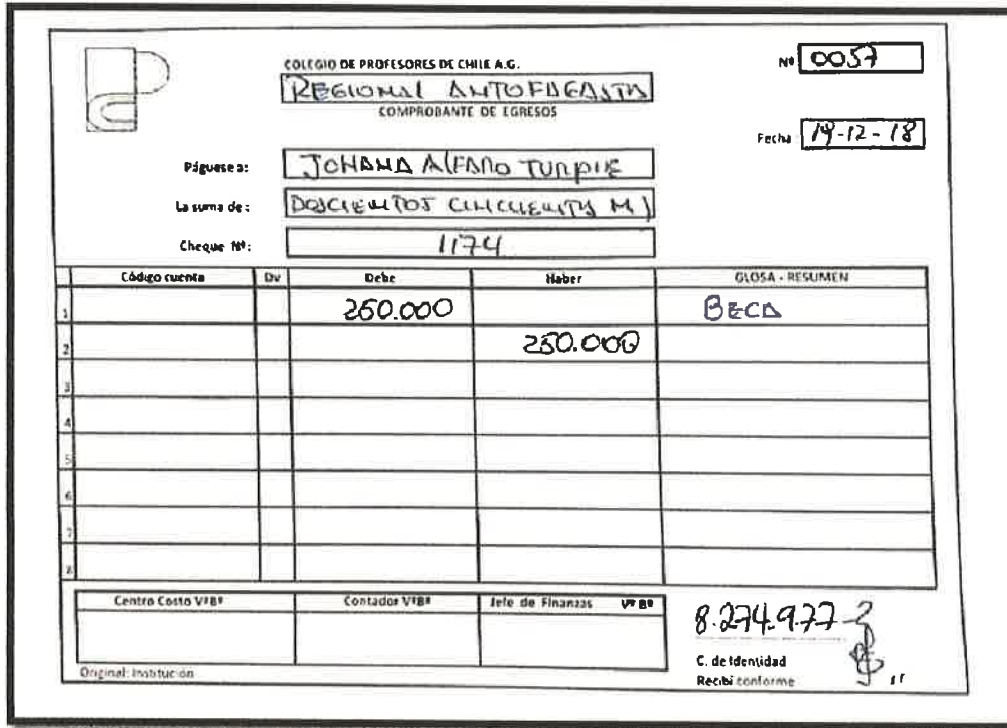 COLEGIO DE PROFESORES DE CHILE A.G.
Nº 0057
REGIONAL ANTOFAGASTA
COMPROBANTE DE EGRESOS
Fecha 19-12-18
Páguese a: JOHANA Alfaro TURPIE
La suma de: DOSCIENTOS CINCUENTA M)
Cheque Nº: 1174
Código cuenta Dv Debe Haber GLOSA - RESUMEN
1 250.000 BECA
2 250.000
3
4
5
6
7
8
Centro Costo VºBº Contador VºBº Jefe de Finanzas VºBº
8.274.977-2
C. de Identidad
Recibí conforme
Original: Institución